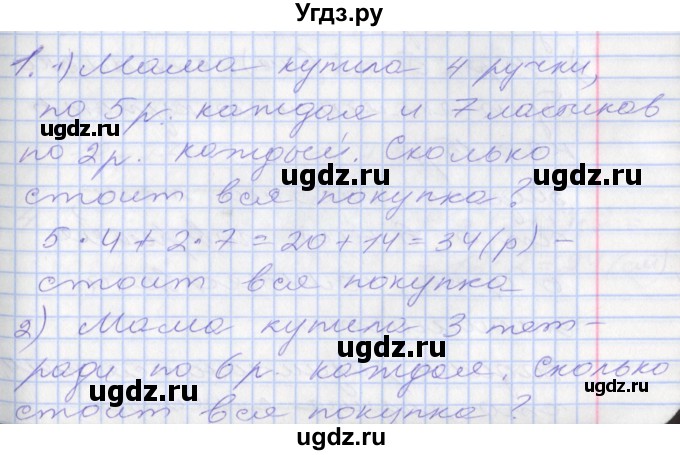 Угдз.ру
1. 1) Мама купила 4 ручки,
по 5 р. каждая и 7 ластиков
ugdz.ru ugdz.ru
по 2 р. каждый. Сколько
ugdz.ru ugdz.ru
стоит вся покупка?
5·4+2·7=20+14=34(р) –
стоит вся покупка
ugdz.ru ugdz.ru
2) Мама купила 3 тет-
ради по 6 р. каждая. Сколько
ugdz.ru ugdz.ru
стоит вся покупка?
ugdz.ru